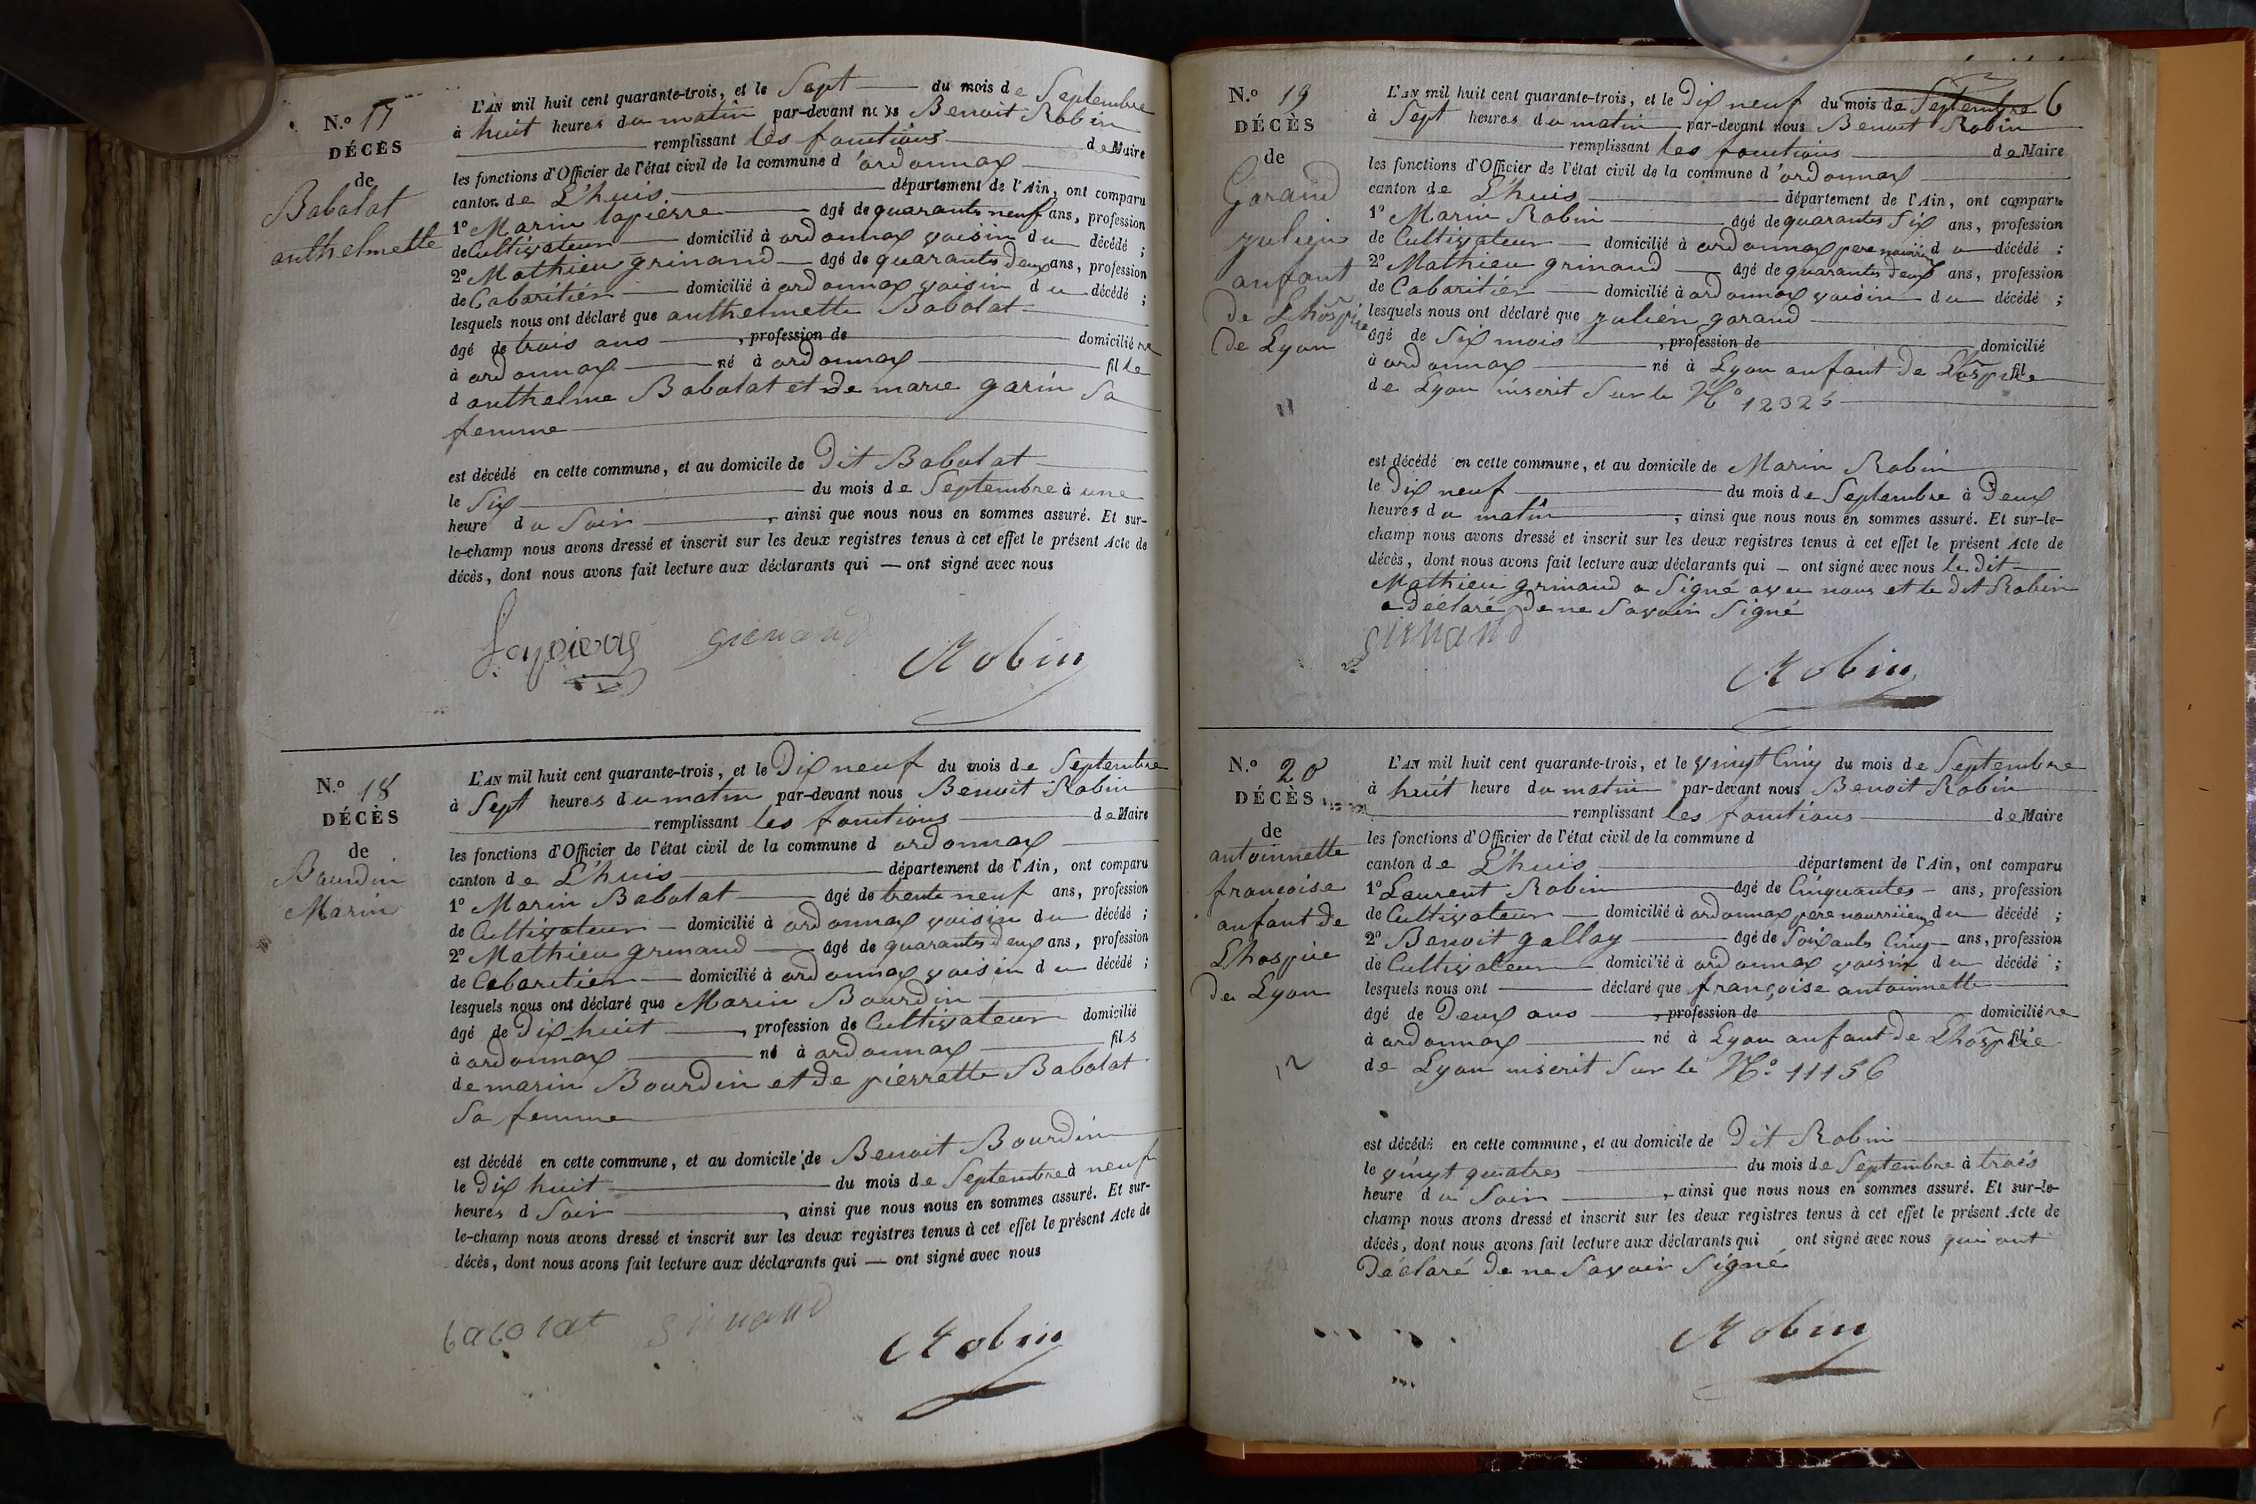 N.º 17
DÉCÈS
de
Babolat
anthelmette
L'AN mil huit cent quarante-trois, et le Sept du mois de Septembre
à huit heures du matin par-devant nous Benoit Robin
remplissant les fonctions de Maire
les fonctions d'Officier de l'état civil de la commune d'ordonnax
canton de L'huis département de l'Ain, ont comparu
1º Marin lapierre âgé de quarante neuf ans, profession
de Cultivateur domicilié à ordonnax voisin du décédé ;
2º Mathieu grinand âgé de quarante deux ans, profession
de Cabaritier domicilié à ordonnax voisin du décédé ;
lesquels nous ont déclaré que anthelmette Babolat
âgé de trois ans , profession de domiciliére
à ordonnax né à ordonnax fille
d anthelme Babolat et de marie garin Sa
femme
est décédé en cette commune, et au domicile de Dit Babolat
le Six du mois de Septembre à une
heure du Soir , ainsi que nous nous en sommes assuré. Et sur-
le-champ nous avons dressé et inscrit sur les deux registres tenus à cet effet le présent Acte de
décès, dont nous avons fait lecture aux déclarants qui — ont signé avec nous
Lapierre grenand Robin
N.º 18
DÉCÈS
de
Bourdin
Marin
L'AN mil huit cent quarante-trois, et le Dix neuf du mois de Septembre
à Sept heures du matin par-devant nous Benoit Robin
remplissant les fonctions de Maire
les fonctions d'Officier de l'état civil de la commune d ordonnax
canton de L'huis département de l'Ain, ont comparu
1º Marin Babolat âgé de trente neuf ans, profession
de Cultivateur domicilié à ordonnax voisin du décédé ;
2º Mathieu grinand âgé de quarante deux ans, profession
de Cabaritier domicilié à ordonnax voisin du décédé ;
lesquels nous ont déclaré que Marin Bourdin
âgé de Dix huit , profession de Cultivateur domicilié
à ordonnax né à ordonnax fils
de marin Bourdin et de pierrette Babolat
Sa femme
est décédé en cette commune, et au domicile de Benoit Bourdin
le Dix huit du mois de Septembre à neuf
heures d Soir , ainsi que nous nous en sommes assuré. Et sur-
le-champ nous avons dressé et inscrit sur les deux registres tenus à cet effet le présent Acte de
décès, dont nous avons fait lecture aux déclarants qui — ont signé avec nous
babolat grinand Robin
6
N.º 19
DÉCÈS
de
Garand
Julien
anfant
De Lhospice
De Lyon
L'AN mil huit cent quarante-trois, et le Dix neuf du mois de Septembre
à Sept heures du matin par-devant nous Benoit Robin
remplissant les fonctions de Maire
les fonctions d'Officier de l'état civil de la commune d'ordonnax
canton de L'huis département de l'Ain, ont comparu
1º Marin Robin âgé de quarante Six ans, profession
de Cultivateur domicilié à ordonnax pere nourriier du décédé ;
2º Mathieu grinand âgé de quarante deux ans, profession
de Cabaritier domicilié à ordonnax voisin du décédé ;
lesquels nous ont déclaré que Julien garand
âgé de Six mois , profession de domicilié
à ordonnax né à Lyon anfant de Lhospice fil
de Lyon inscrit Sur le Nº 12325
11
est décédé en cette commune, et au domicile de Marin Robin
le Dix neuf du mois de Septembre à Deux
heures du matin , ainsi que nous nous en sommes assuré. Et sur-le-
champ nous avons dressé et inscrit sur les deux registres tenus à cet effet le présent Acte de
décès, dont nous avons fait lecture aux déclarants qui — ont signé avec nous le dit
Mathieu grinand a Signé avec nous et le dit Robin
a declaré de ne Savoir Signé
grinand
Robin
N.º 20
DÉCÈS
de
antoinnette
francoise
anfant de
Lhospice
De Lyon
L'AN mil huit cent quarante-trois, et le vingt Cinq du mois de Septembre
à heuit heure du matin par-devant nous Benoit Robin
remplissant les fonctions de Maire
les fonctions d'Officier de l'état civil de la commune d
canton de L'huis département de l'Ain, ont comparu
1º Laurent Robin âgé de Cinquantes ans, profession
de Cultivateur domicilié à ordonnax pere nourriier du décédé ;
2º Benoit gallay âgé de Soixante Cinq ans, profession
de Cultivateur domicilié à ordonnax voisin du décédé ;
lesquels nous ont déclaré que françoise antoinnette
âgé de Deux ans , profession de domiciliére
à ordonnax né à Lyon anfant de Lhospice fil
de Lyon inscrit Sur le Nº 11156
12
est décédé en cette commune, et au domicile de Dit Robin
le vingt quatres du mois de Septembre à trois
heure du Soir , ainsi que nous nous en sommes assuré. Et sur-le-
champ nous avons dressé et inscrit sur les deux registres tenus à cet effet le présent Acte de
décès, dont nous avons fait lecture aux déclarants qui ont signé avec nous qui ont
Déclaré De ne Savoir Signé
Robin